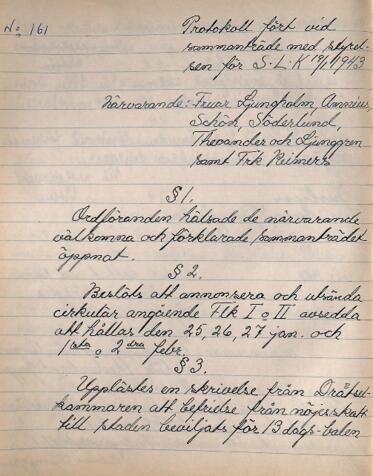 No 161
Protokoll fört vid
sammanträde med styrel-
sen för S.L.K 19/1 1943
Närvarande: Fruar Ljungholm, Amnius,
Schön, Söderlund,
Theoander och Ljunggren
samt Frk Reimers
§ 1.
Ordföranden hälsade de närvarande
välkomna och förklarade sammanträdet
öppnat.
§ 2.
Beslöts att annonsera och utsända
cirkulär angående Ftk I o II avsedda
att hållas den 25, 26, 27 jan. och
1sta o 2dra febr.
§ 3.
Upplästes en skrivelse från Drätsel-
kammaren att befrielse från nöjesskatt
till staden beviljats för 13 dags-balen